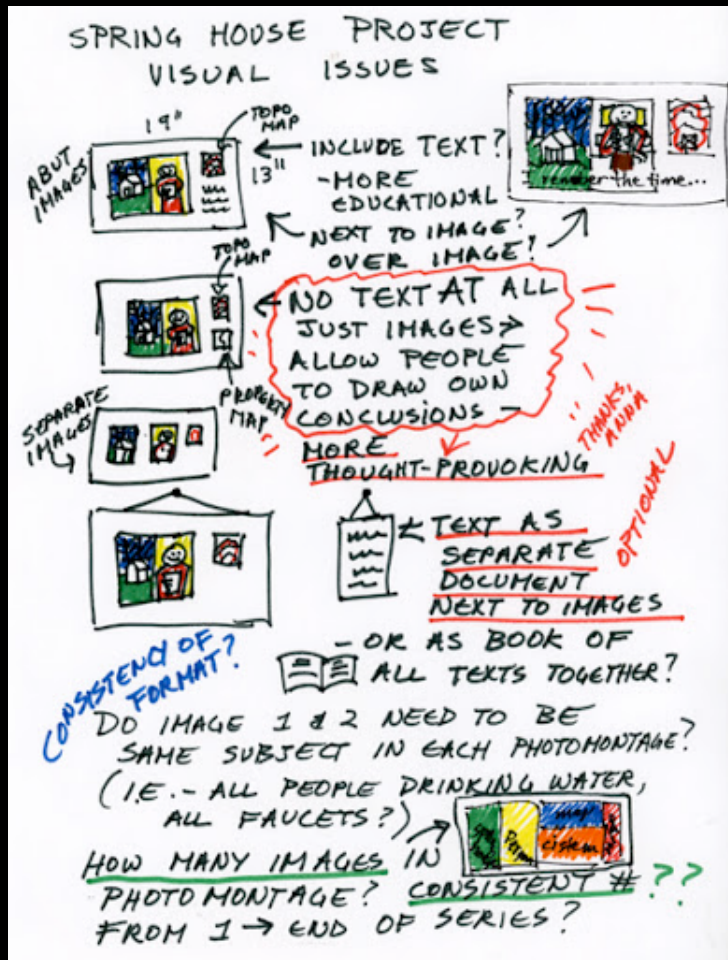 SPRING HOUSE PROJECT
VISUAL ISSUES
19"
TOPO
MAP
13"
ABUT
IMAGES
INCLUDE TEXT?
-MORE
EDUCATIONAL
NEXT TO IMAGE?
OVER IMAGE?
I remember the time...
TOPO
MAP
NO TEXT AT ALL
JUST IMAGES
ALLOW PEOPLE
TO DRAW OWN
CONCLUSIONS -
PROPERTY
MAP
SEPARATE
IMAGES
MORE
THOUGHT-PROVOKING
THANKS,
ANNA
OPTIONAL
TEXT AS
SEPARATE
DOCUMENT
NEXT TO IMAGES
- OR AS BOOK OF
ALL TEXTS TOGETHER?
CONSISTENCY OF
FORMAT?
DO IMAGE 1 & 2 NEED TO BE
SAME SUBJECT IN EACH PHOTOMONTAGE?
(I.E. - ALL PEOPLE DRINKING WATER,
ALL FAUCETS?)
Person
map
cistern
HOW MANY IMAGES IN
PHOTOMONTAGE? CONSISTENT # ??
FROM 1 → END OF SERIES?